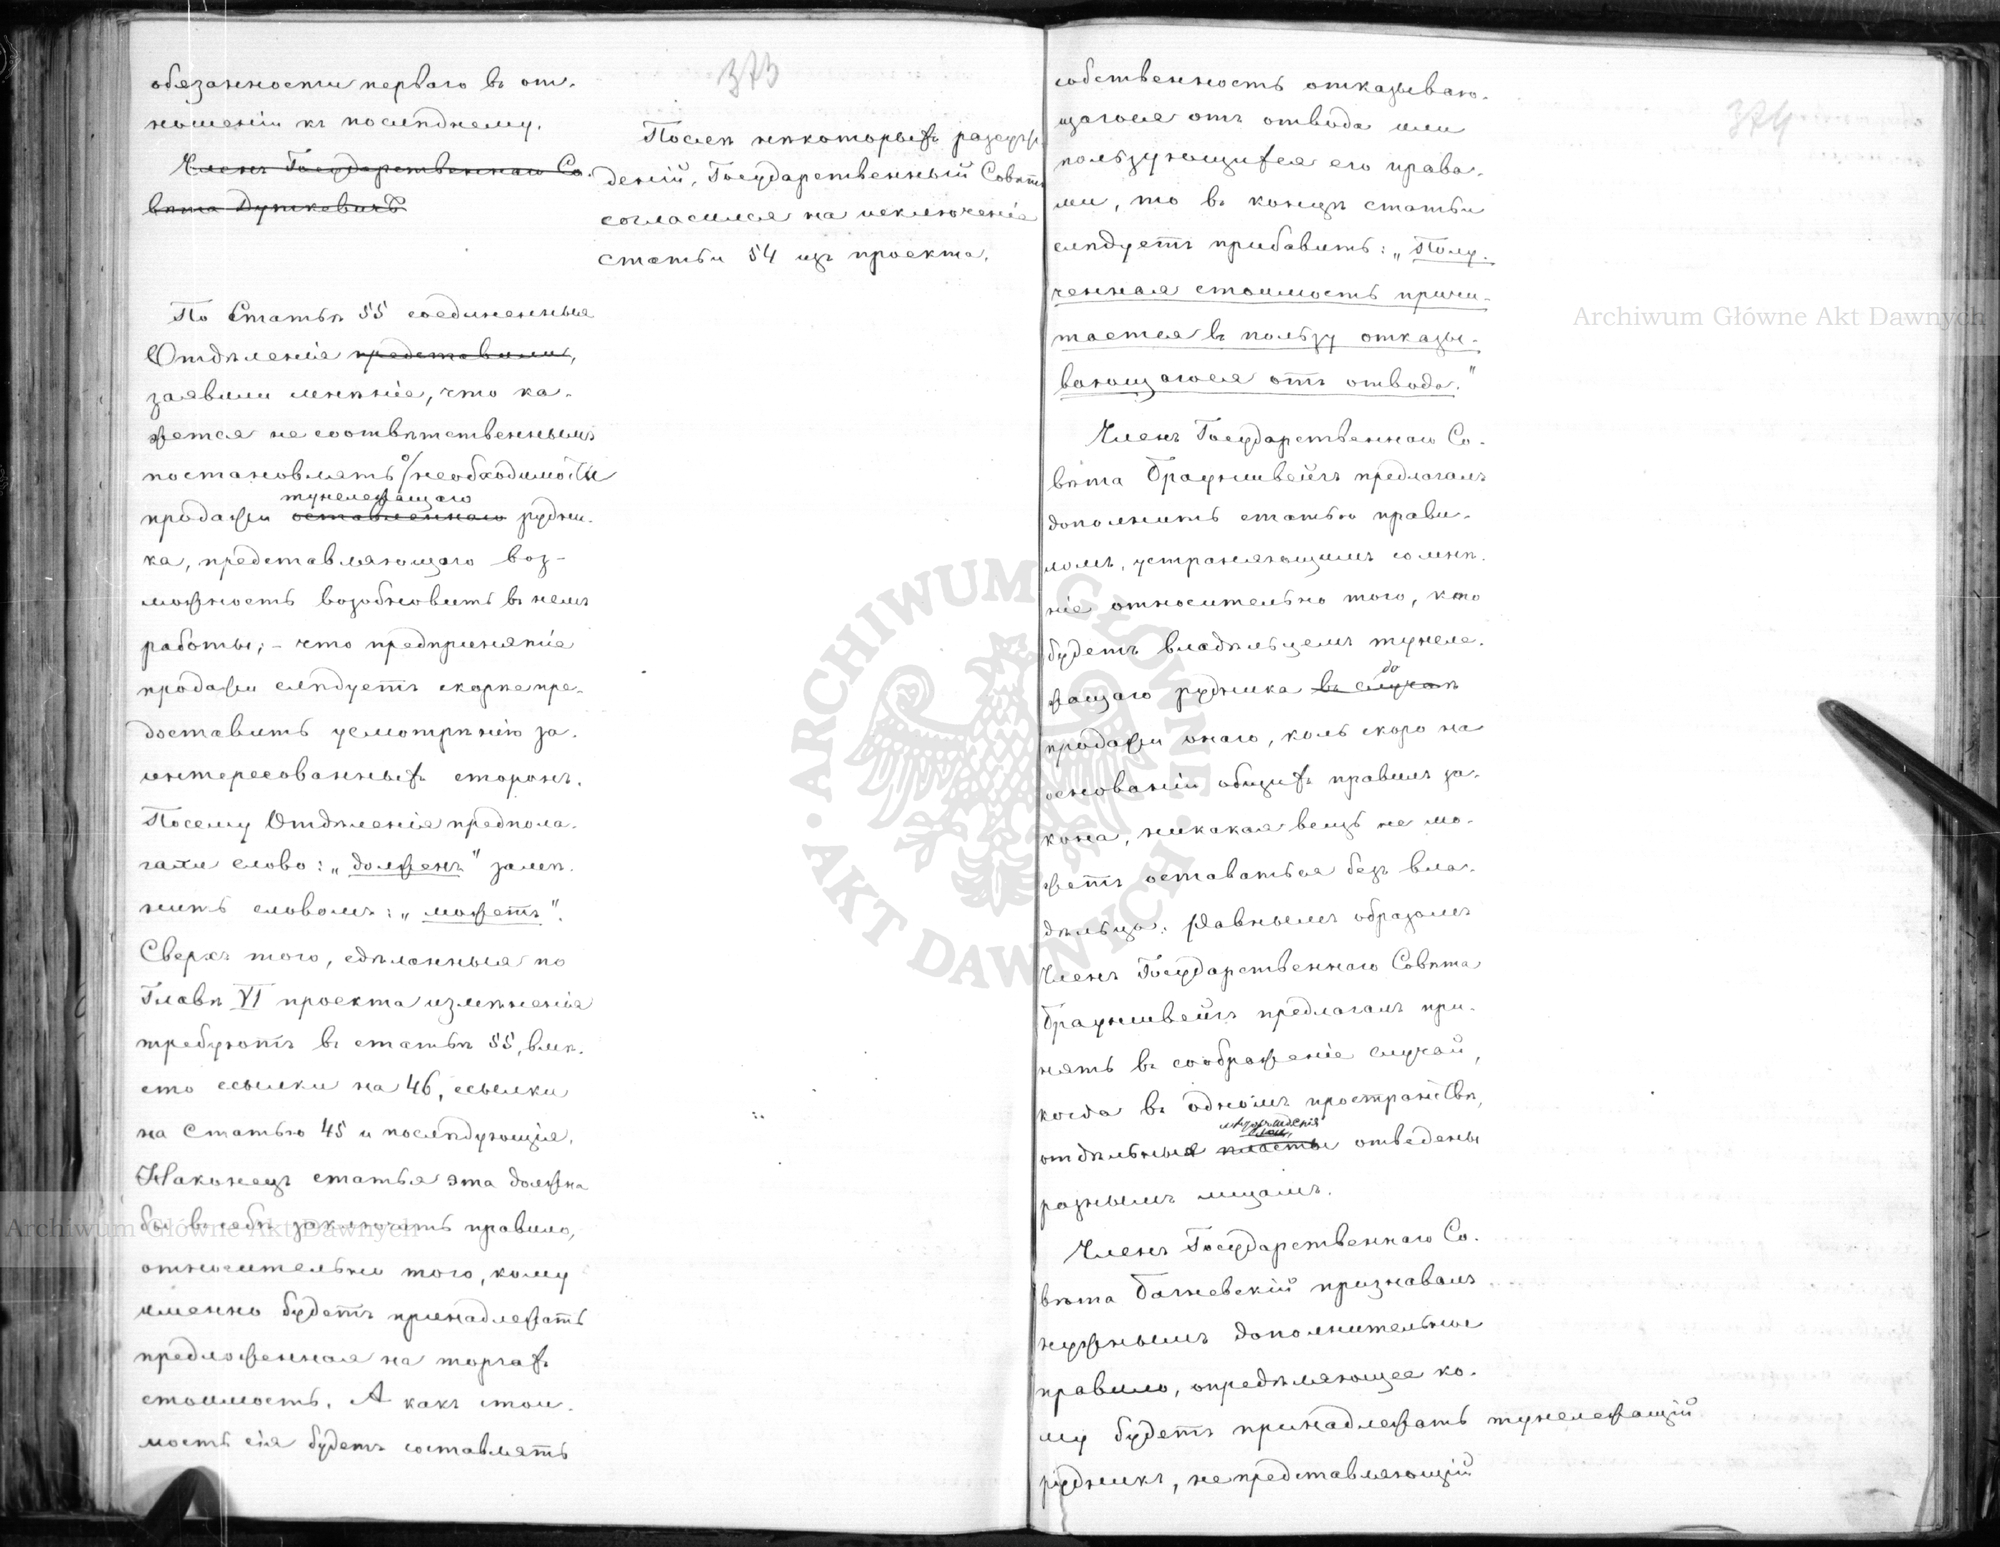 373
обязанности перваго въ от-
ношеніи къ послѣднему.
Членъ Государственнаго Со-
вѣта Дуткевичъ
Послѣ нѣкоторыхъ разсуж-
деній, Государственный Совѣтъ
согласился на исключеніе
статьи 54 изъ проекта.
По Статьѣ 55 соединенныя
Отдѣленія представили,
заявили мнѣніе, что ка-
жется не соотвѣтственнымъ
постановлять о необходимости
тунележащаго
продажи оставленнаго рудни-
ка, представляющаго воз-
можность возобновить въ немъ
работы; - что предпринятіе
продажи слѣдуетъ скорѣе пре-
доставить усмотрѣнію за-
интересованныхъ сторонъ.
Посему Отдѣленія предпола-
гали слово: „долженъ" замѣ-
нить словомъ: „можетъ".
Сверхъ того, сдѣланныя по
Главѣ VI проекта измѣненія
требуютъ въ статьѣ 55, вмѣ-
сто ссылки на 46, ссылки
на Статью 45 и послѣдующія.
Наконецъ статья эта должна
бы въ себѣ заключать правило,
относительно того, кому
именно будетъ принадлежать
предложенная на торгахъ
стоимость. А какъ стои-
мость сія будетъ составлять
374
собственность отказываю-
щагося отъ отвода или
пользующихся его права-
ми, то въ концѣ статьи
слѣдуетъ прибавить: „Полу-
ченная стоимость причи-
тается въ пользу отказы-
вающагося отъ отвода."
Членъ Государственнаго Со-
вѣта Брауншвейгъ предлагалъ
дополнить статью прави-
ломъ, устраняющимъ сомнѣ-
ніе относительно того, кто
будетъ владѣльцемъ тунеле-
до
жащаго рудника въ случаѣ
продажи онаго, коль скоро на
основаніи общихъ правилъ за-
кона, никакая вещь не мо-
жетъ оставаться безъ вла-
дѣльца. Равнымъ образомъ
Членъ Государственнаго Совѣта
Брауншвейгъ предлагалъ при-
нять въ соображеніе случай,
когда въ одномъ пространствѣ,
отдѣльныя пласты отведены
разнымъ лицамъ.
Членъ Государственнаго Со-
вѣта Багневскій признавалъ
нужнымъ дополнительное
правило, опредѣляющее ко-
му будетъ принадлежать тунележащій
рудникъ, не представляющій
Archiwum Główne Akt Dawnych
Archiwum Główne Akt Dawnych
ARCHIWUM GŁÓWNE
AKT DAWNYCH